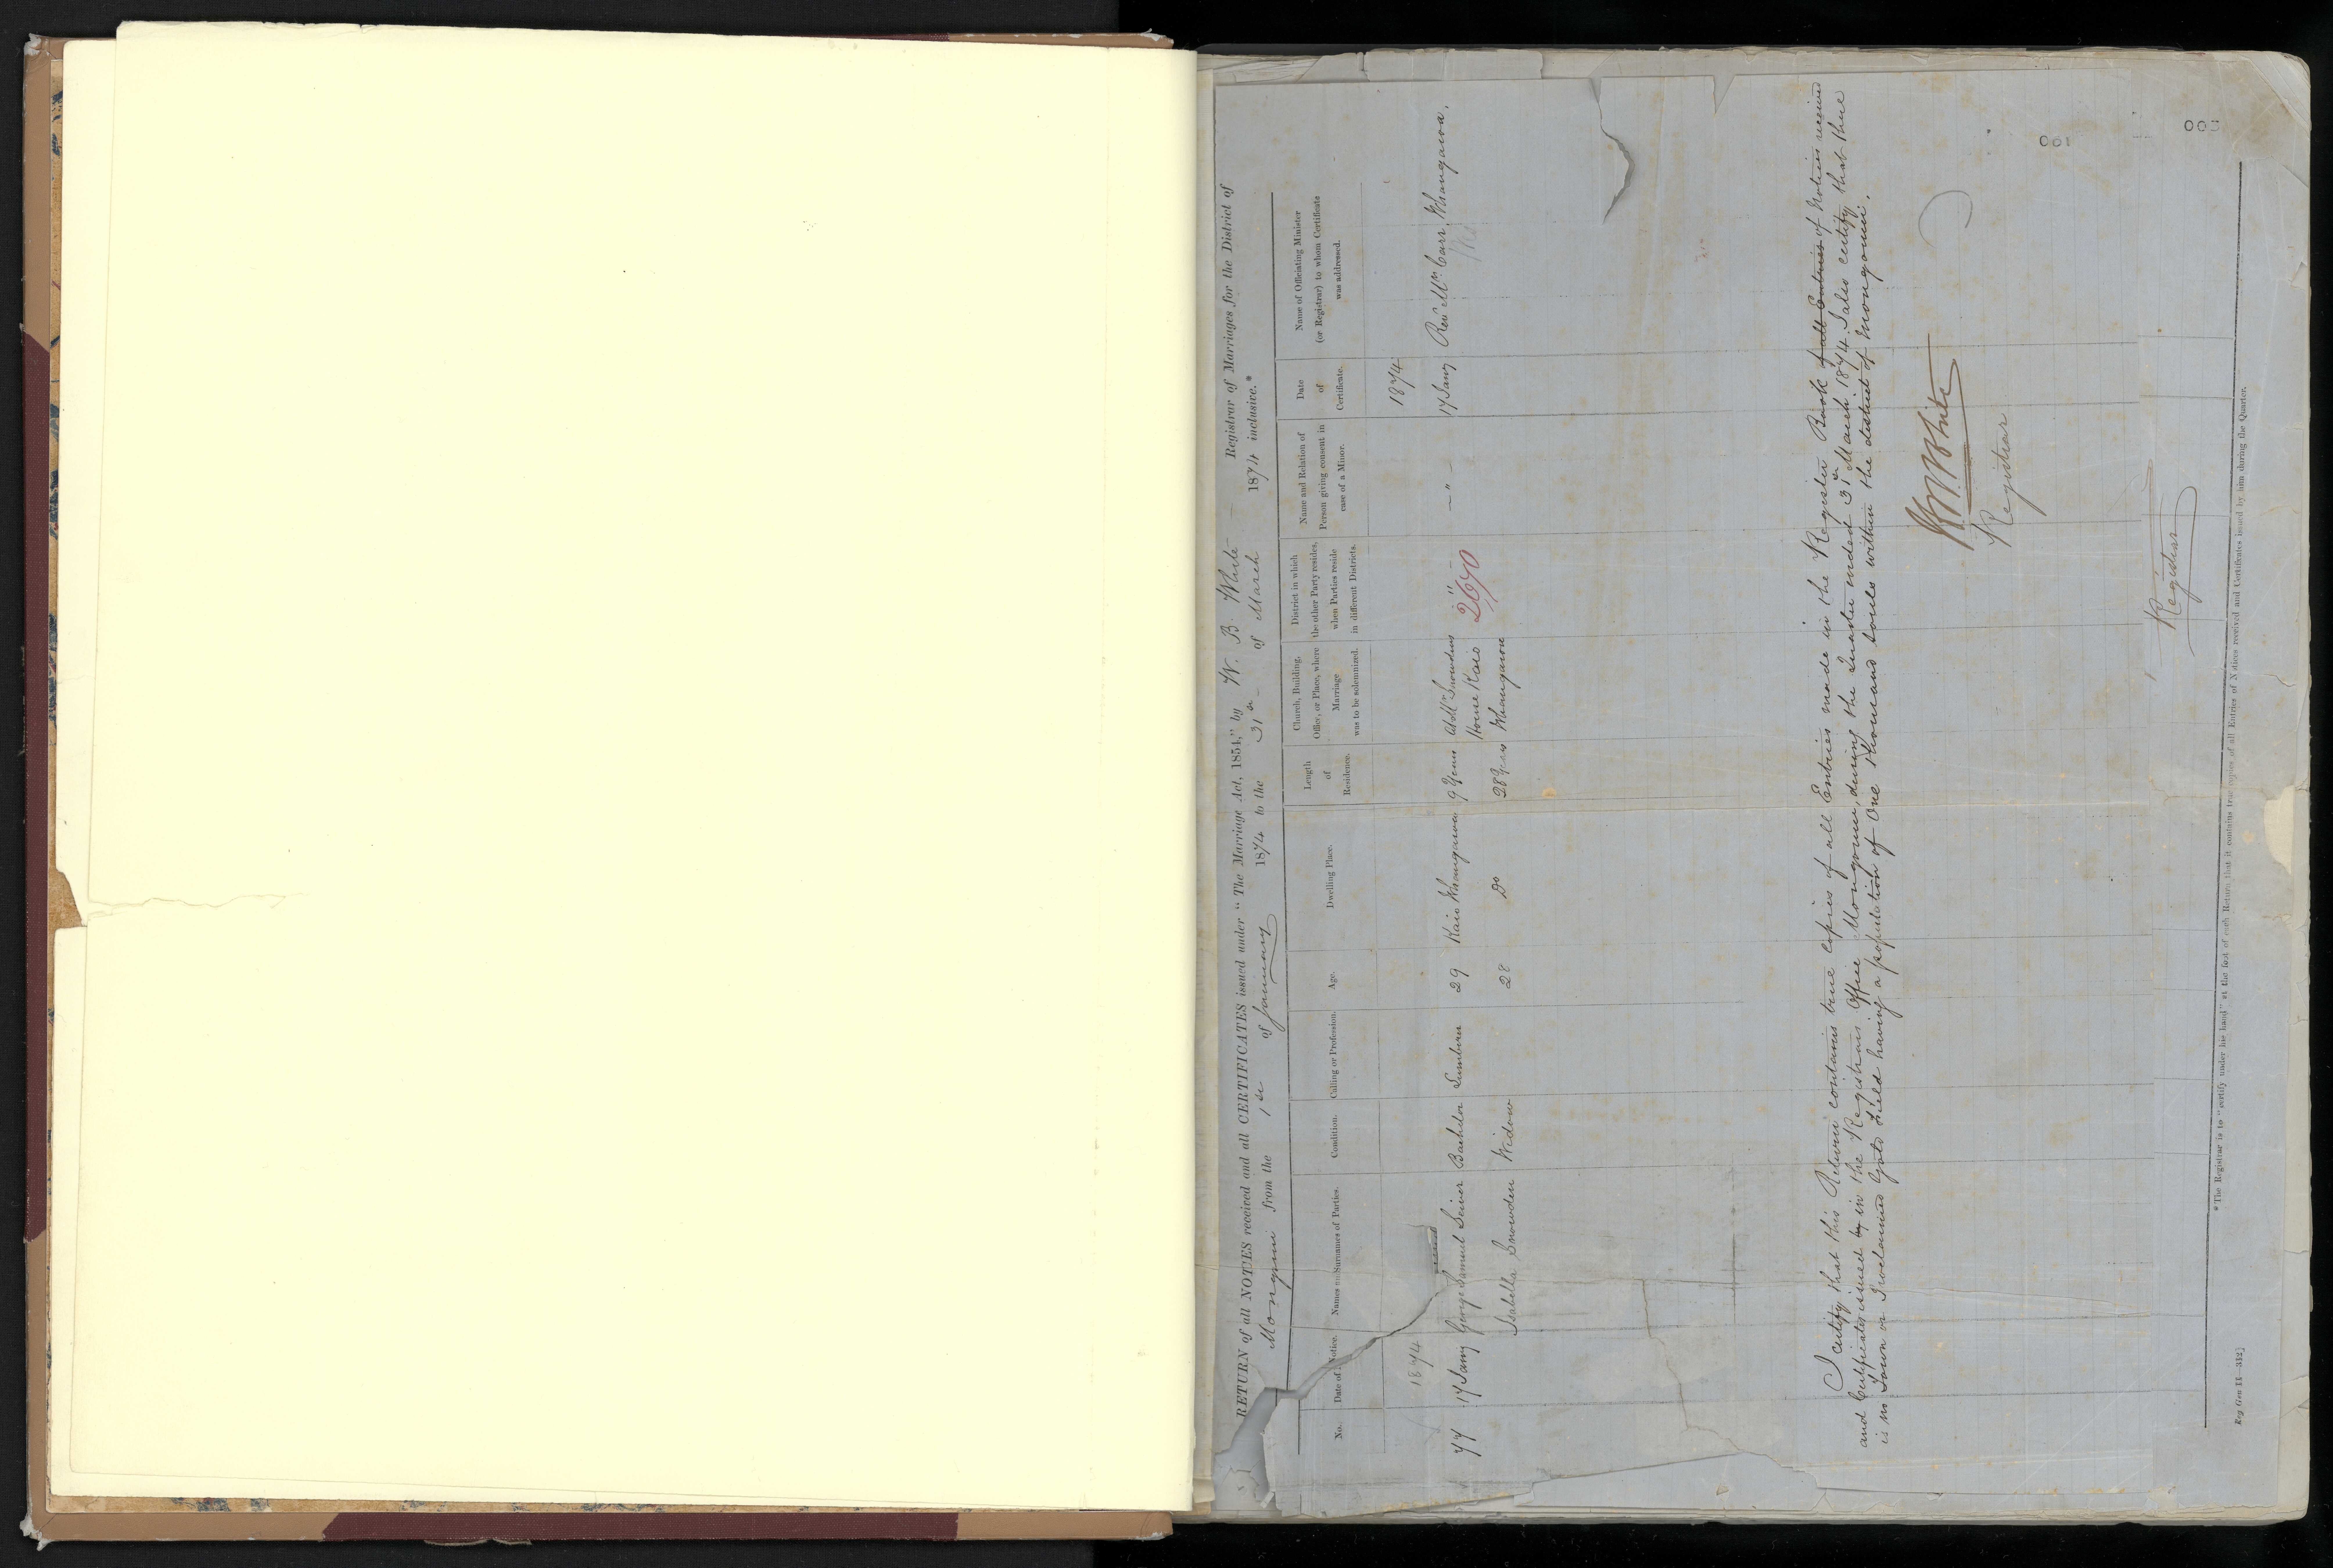 RETURN of all NOTICES received and all CERTIFICATES issued under "The Marriage Act, 1854," by W. B. White – Registrar of Marriages for the District of
Mongonui from the 1st of January 1874 to the 31st of March 1874 inclusive.*
No.
Date of Notice.
Names and Surnames of Parties.
Condition.
Calling or Profession.
Age.
Dwelling Place.
Length
of
Residence.
Church, Building,
Office, or Place, where
Marriage
was to be solemnized.
District in which
the other Party resides,
when Parties reside
in different Districts.
Name and Relation of
Person giving consent in
case of a Minor.
Date
of
Certificate.
Name of Officiating Minister
(or Registrar) to whom Certificate
was addressed.
1874 1874
77 17 Jany George Samuel Bachelor 29 Kaio Whangaroa 9 Years at Mrs Snowdens – " – – " – 17 Jany Revd Mr Carr Whangaroa.
House Kaio
2670
Isabella Snowden Widow 28 Do 28 Years Whangaroa
I certify that this Return contains true copies of all Entries made in the Register Book of all Entries of Notices received
and Certificates issued by in the Registrars Office Mongonui, during the Quarter ended 31st March 1874. I also certify that there
is no Town or Proclaimed Gold Field having a population of One Thousand souls within the district of Mongonui.
W B White
Registrar
001
Registrar
003
*The Registrar is to "certify under his hand" at the foot of each Return that it contains true copies of all Entries of Notices received and Certificates issued by him during the Quarter.